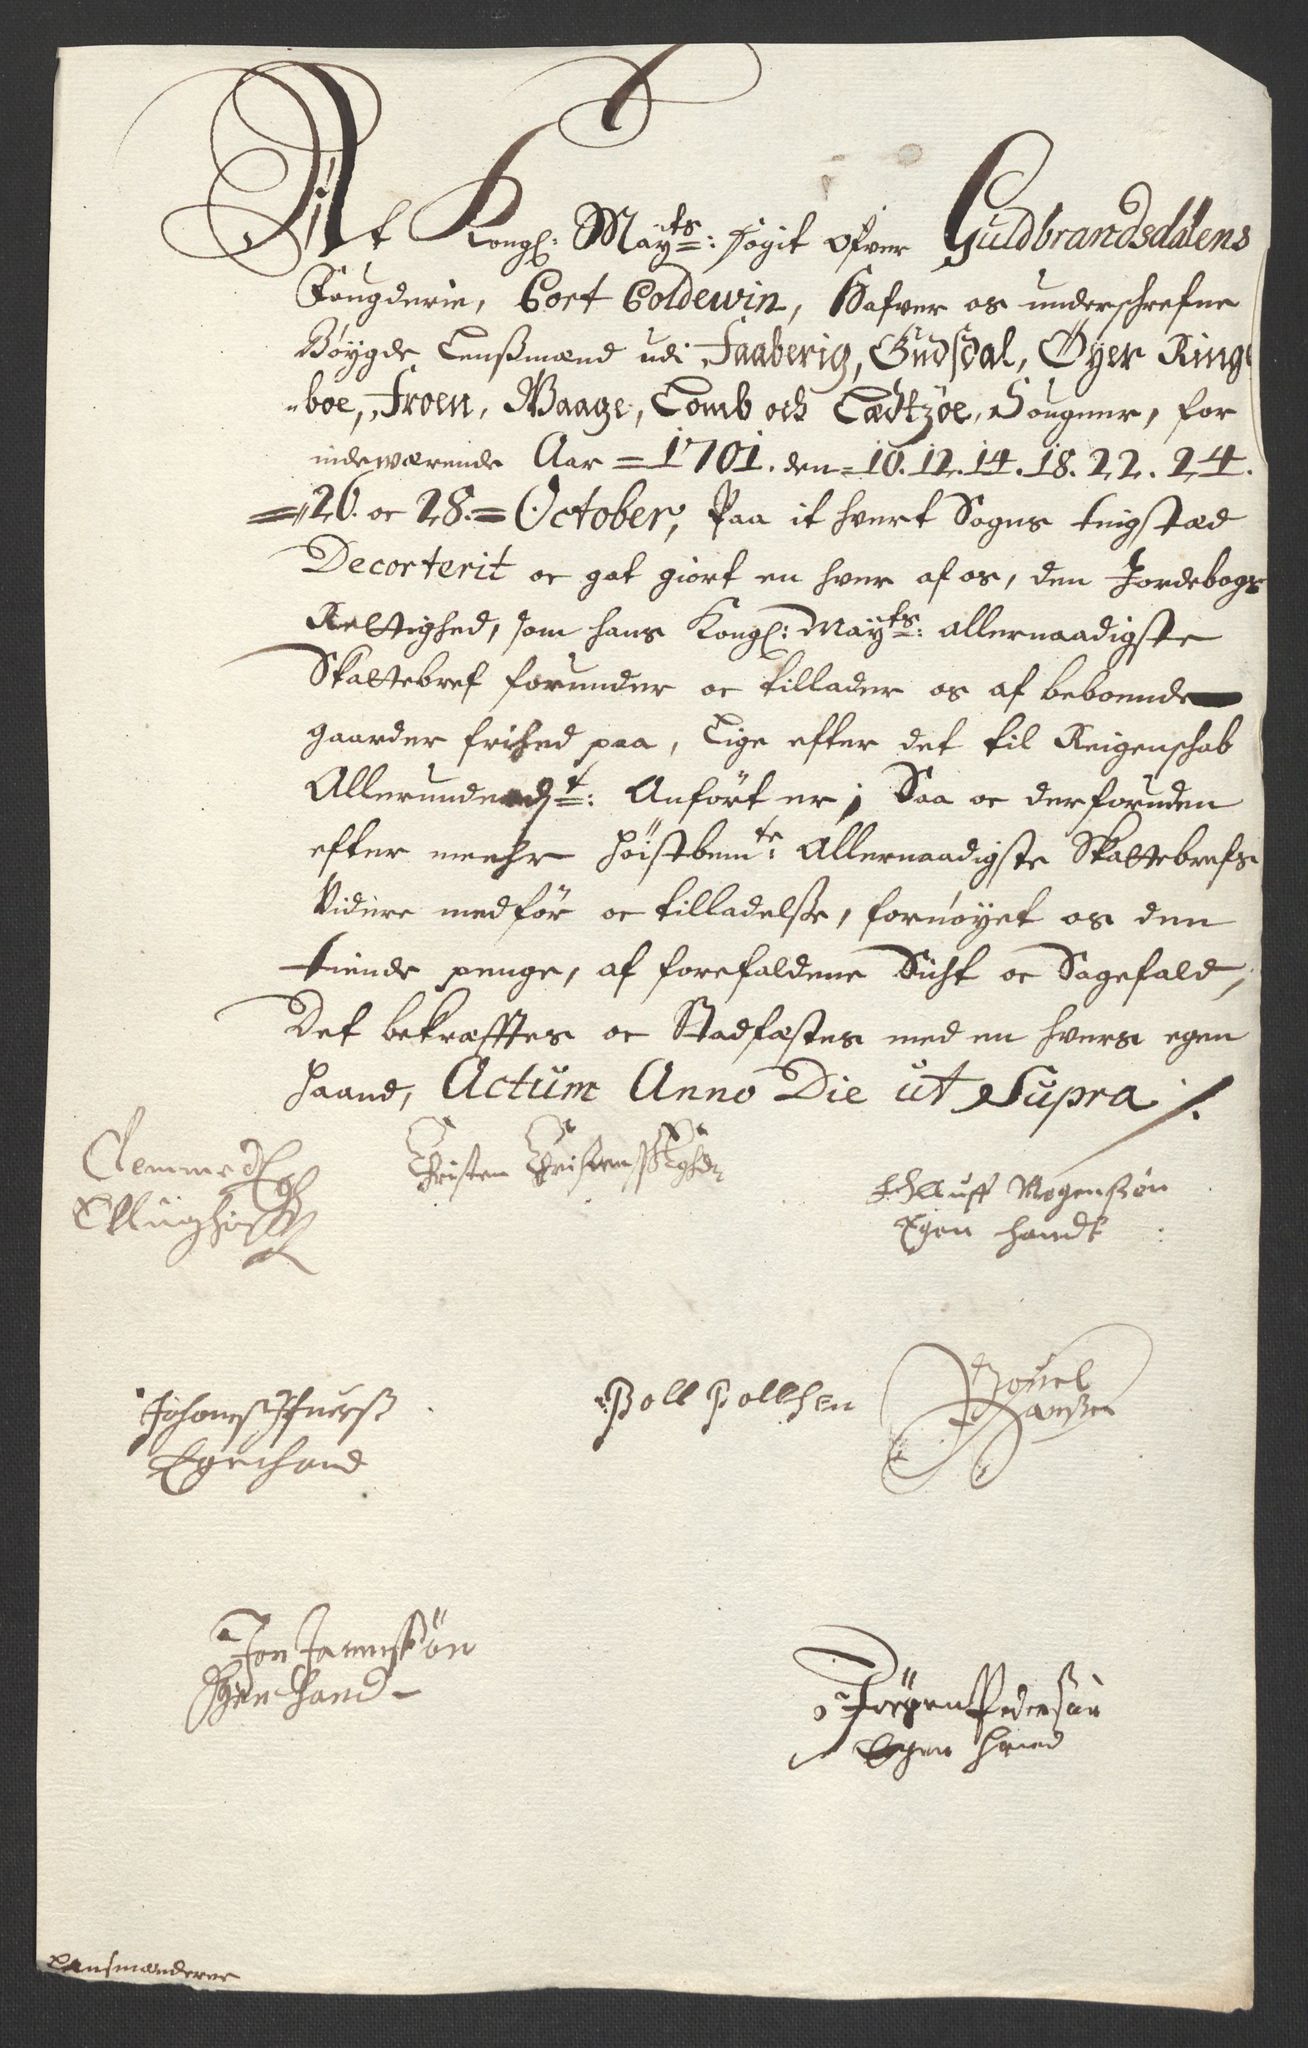 At Kongl: Mayts: fogit ofver Guldbrandsdalens
Fougderie, Cort Coldewin, Hafver os underschrefne
Bøygde Lensßmænd udi Faaberig, Gudsdal, Øyer Ringe
-boe, Froen, Waage, Lomb och Lædtzøe, Sougner, for
indeværende Aar = 1701. den = 10. 12. 14. 18. 22. 24.
= 26. oc 28. = October, Paa it hvert Sogns tingstæd
Decorterit oc got giort en hver af os, den Jordebogs
Rettighed, som hans Kongl: Mayts: allernaadigste
Skattebref forunder oc tillader os af beboende
gaarder frihed paa, Lige efter det til Reigenschab
Allerunderdt: Anført er; Saa oc derforuden
efter meehr høistbemte: Allernaadigste Skattebrefs
Videre medfør oc tilladelse, fornøyet os den
tiende penge, af forefaldene Sicht oc Sagefald,
Det bekræfftes oc Stadfæstes med en hvers egen
haand, Actum Anno Die ut Supra /.
Christen
Mogensøn
Egen handt
Egenhand
Poell Poellsen
Povel
Hanßen
Jon
Egen hand
Jørgen Pedersøn
Egen haand
Lensmænderne